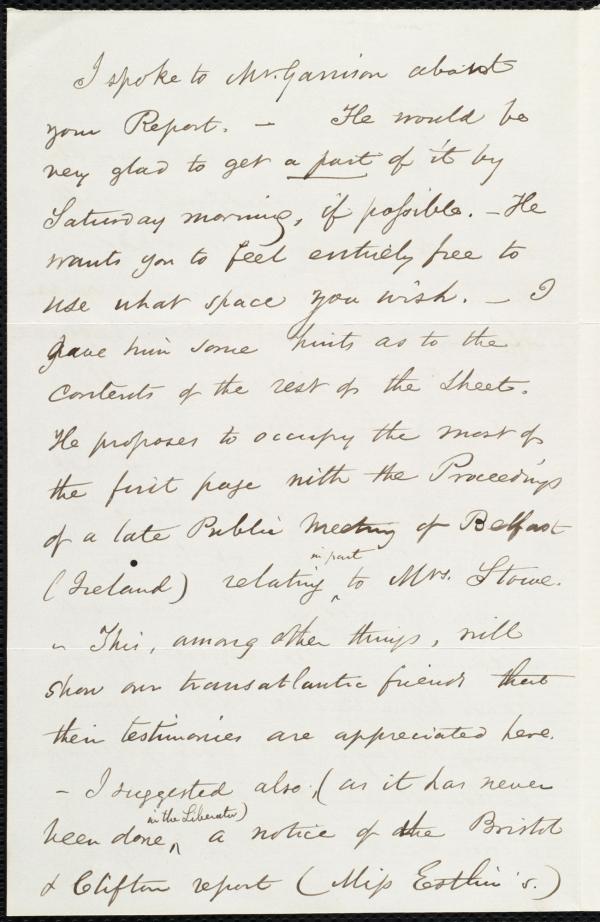 I spoke to Mr. Garrison about
your Report. — He would be
very glad to get a part of it by
Saturday morning, if possible. — He
wants you to feel entirely free to
use what space you wish. — I
gave him some hints as to the
contents of the rest of the sheet.
He proposes to occupy the most of
the first page with the Proceedings
of a late Public Meeting of Belfast
(Ireland) relating in part to Mrs. Stowe.
— This, among other things, will
show our transatlantic friends that
their testimonies are appreciated here.
— I suggested also, (as it has never
been done, in the Liberator) a notice of the Bristol
& Clifton report (Miss Estlin's.)